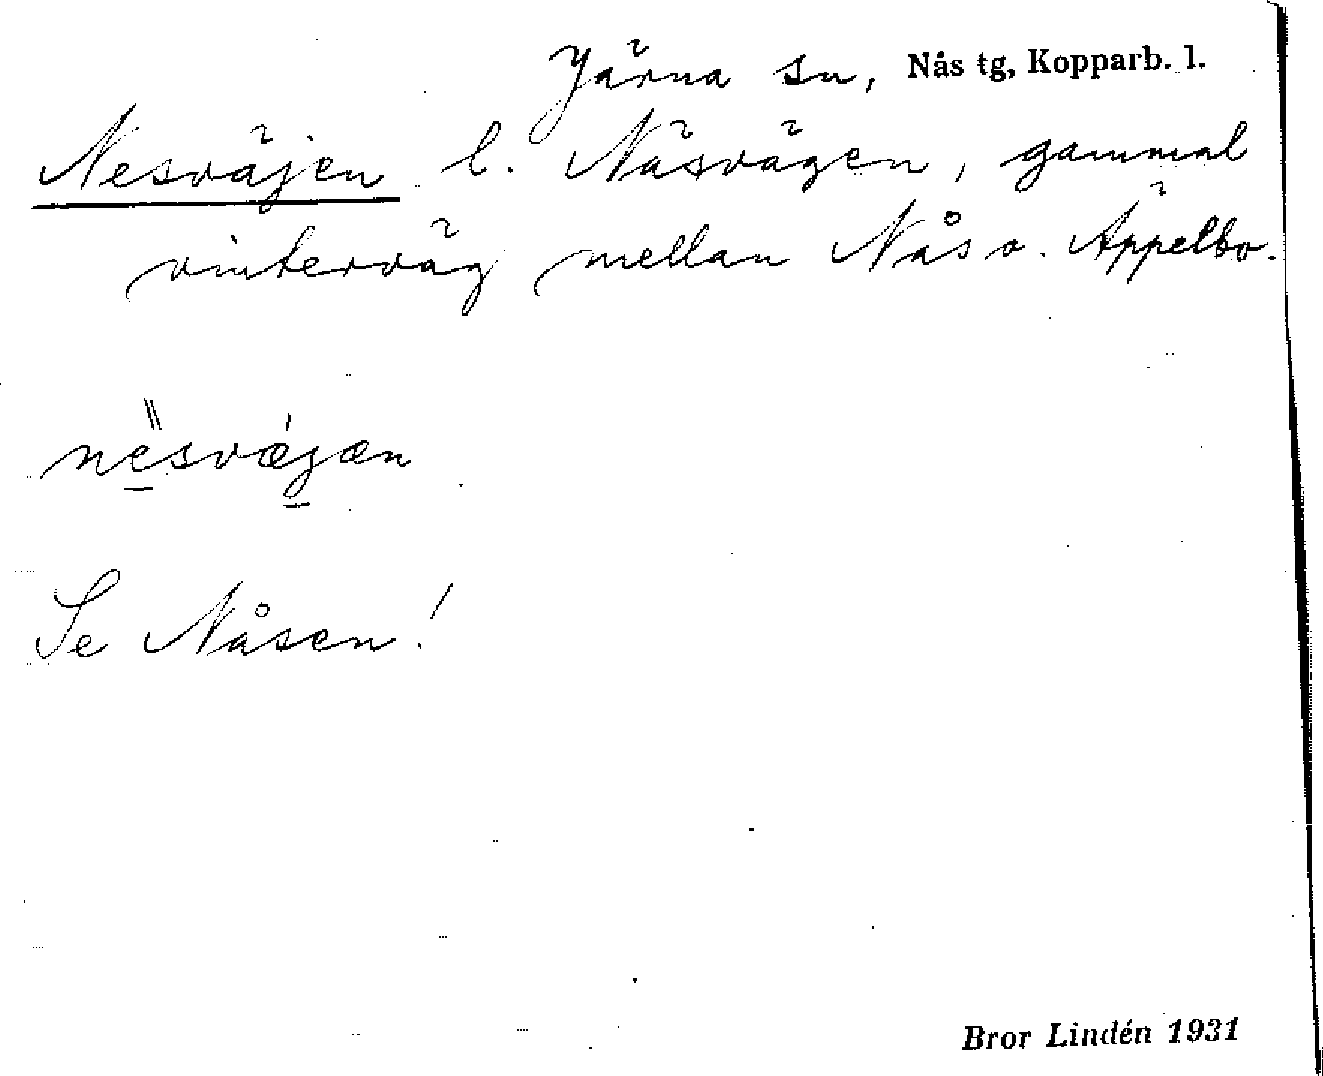 Järna sn, Nås tg, Kopparb. l.
Nesväjen l. Näsvägen, gammal
vinterväg mellan Nås o. Äppelbo.
nësvǽgæn
Se Nåsen!
Bror Lindén 1931